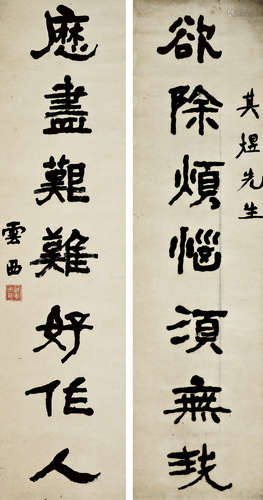 其煜先生
欲除煩惱須無我
歷盡艱難好作人
雲西